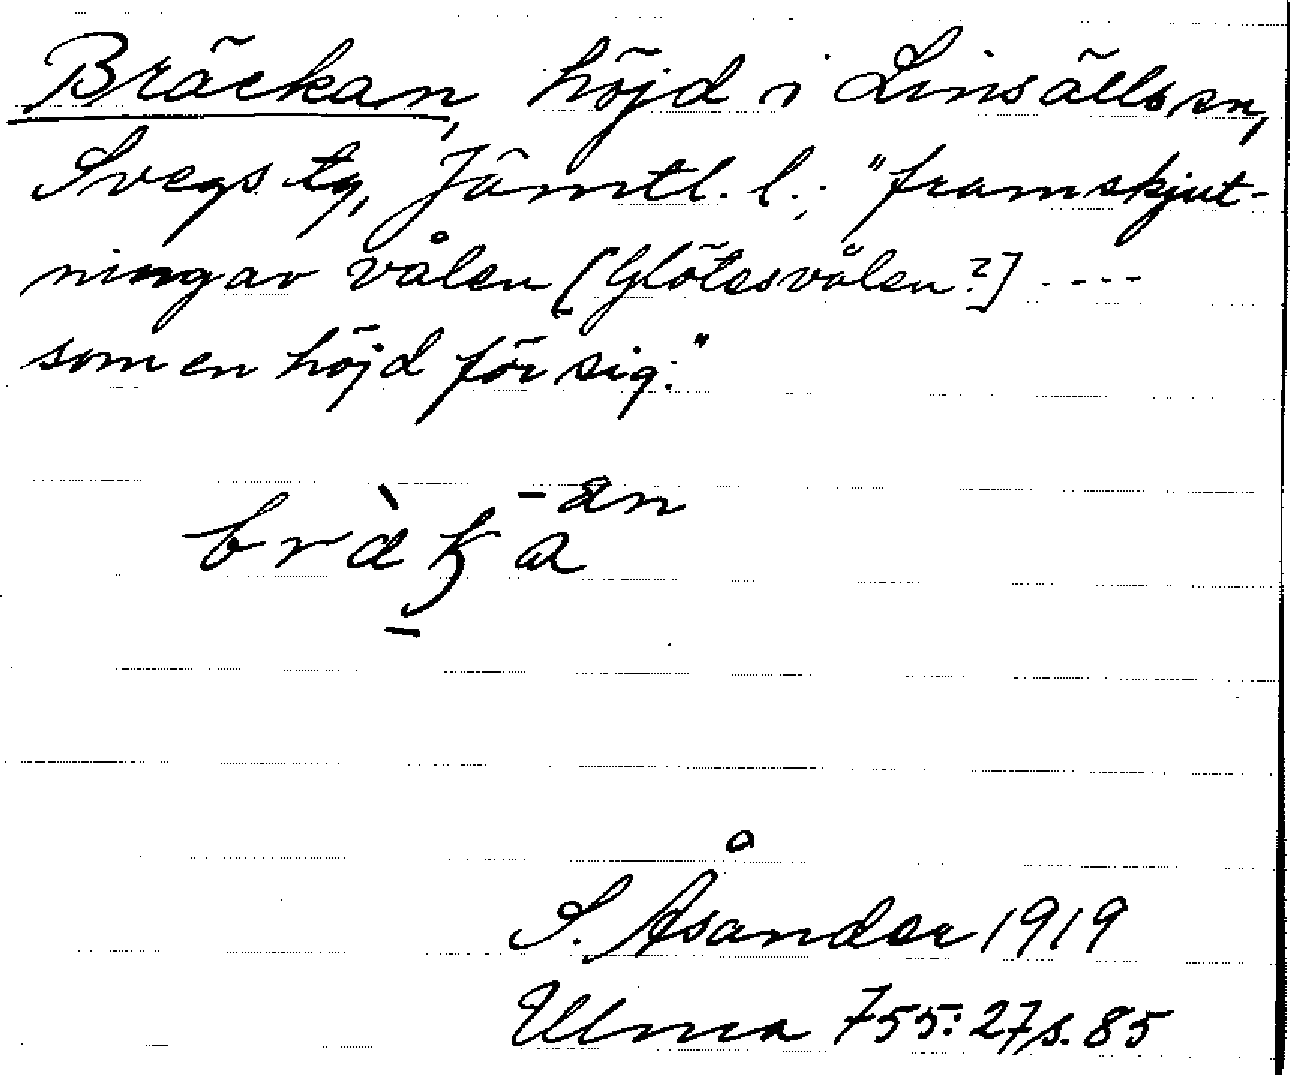 Bräckan, höjd i Linsälls sn,
Svegs tg, Jämtl. l.; "framskjut-
ning av vålen [Glötesvålen?] ----
som en höjd för sig."
-an
bràka
S. Åsander 1919
Ulma 755:27 s. 85